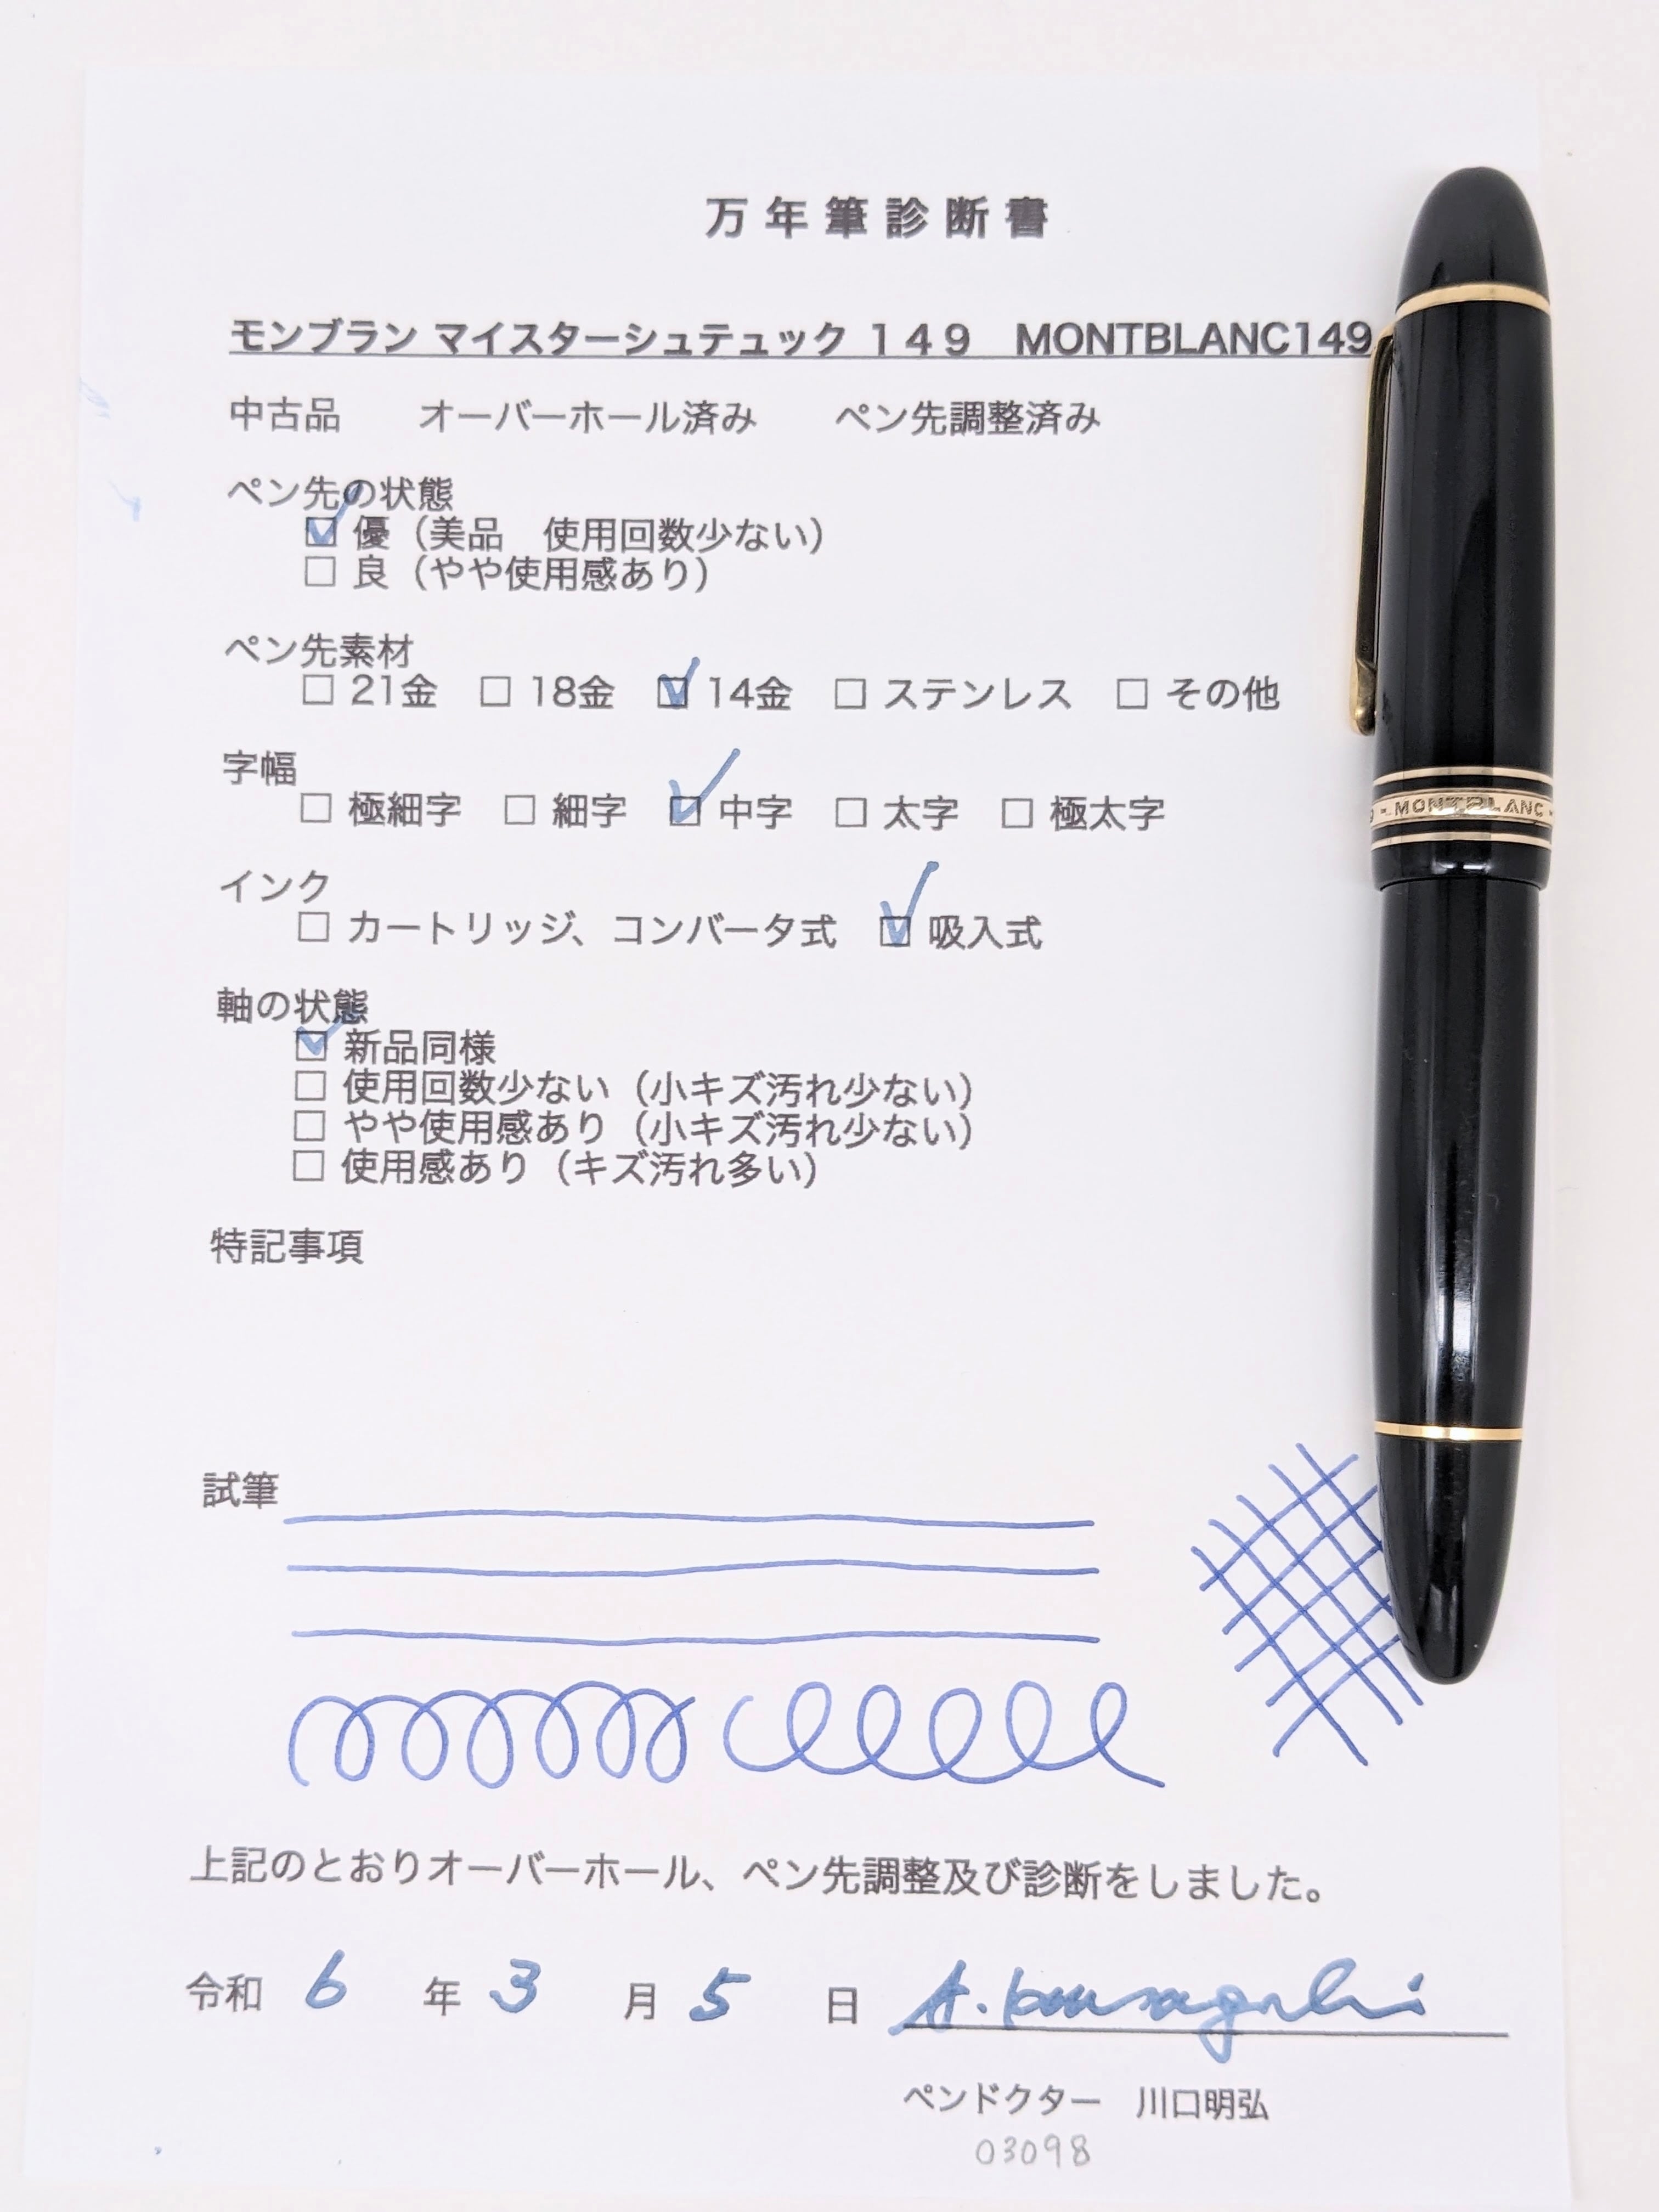 万年筆診断書
モンブラン マイスターシュテュック １４９　MONTBLANC149
中古品　　オーバーホール済み　　ペン先調整済み
ペン先の状態
☑ 優（美品　使用回数少ない）
□ 良（やや使用感あり）
ペン先素材
□ 21金　□ 18金　☑ 14金　□ ステンレス　□ その他
字幅
□ 極細字　□ 細字　☑ 中字　□ 太字　□ 極太字
インク
□ カートリッジ、コンバータ式　☑ 吸入式
軸の状態
☑ 新品同様
□ 使用回数少ない（小キズ汚れ少ない）
□ やや使用感あり（小キズ汚れ少ない）
□ 使用感あり（キズ汚れ多い）
特記事項
試筆
上記のとおりオーバーホール、ペン先調整及び診断をしました。
令和 6 年 3 月 5 日
ペンドクター　川口明弘
03098
MONTBLANC